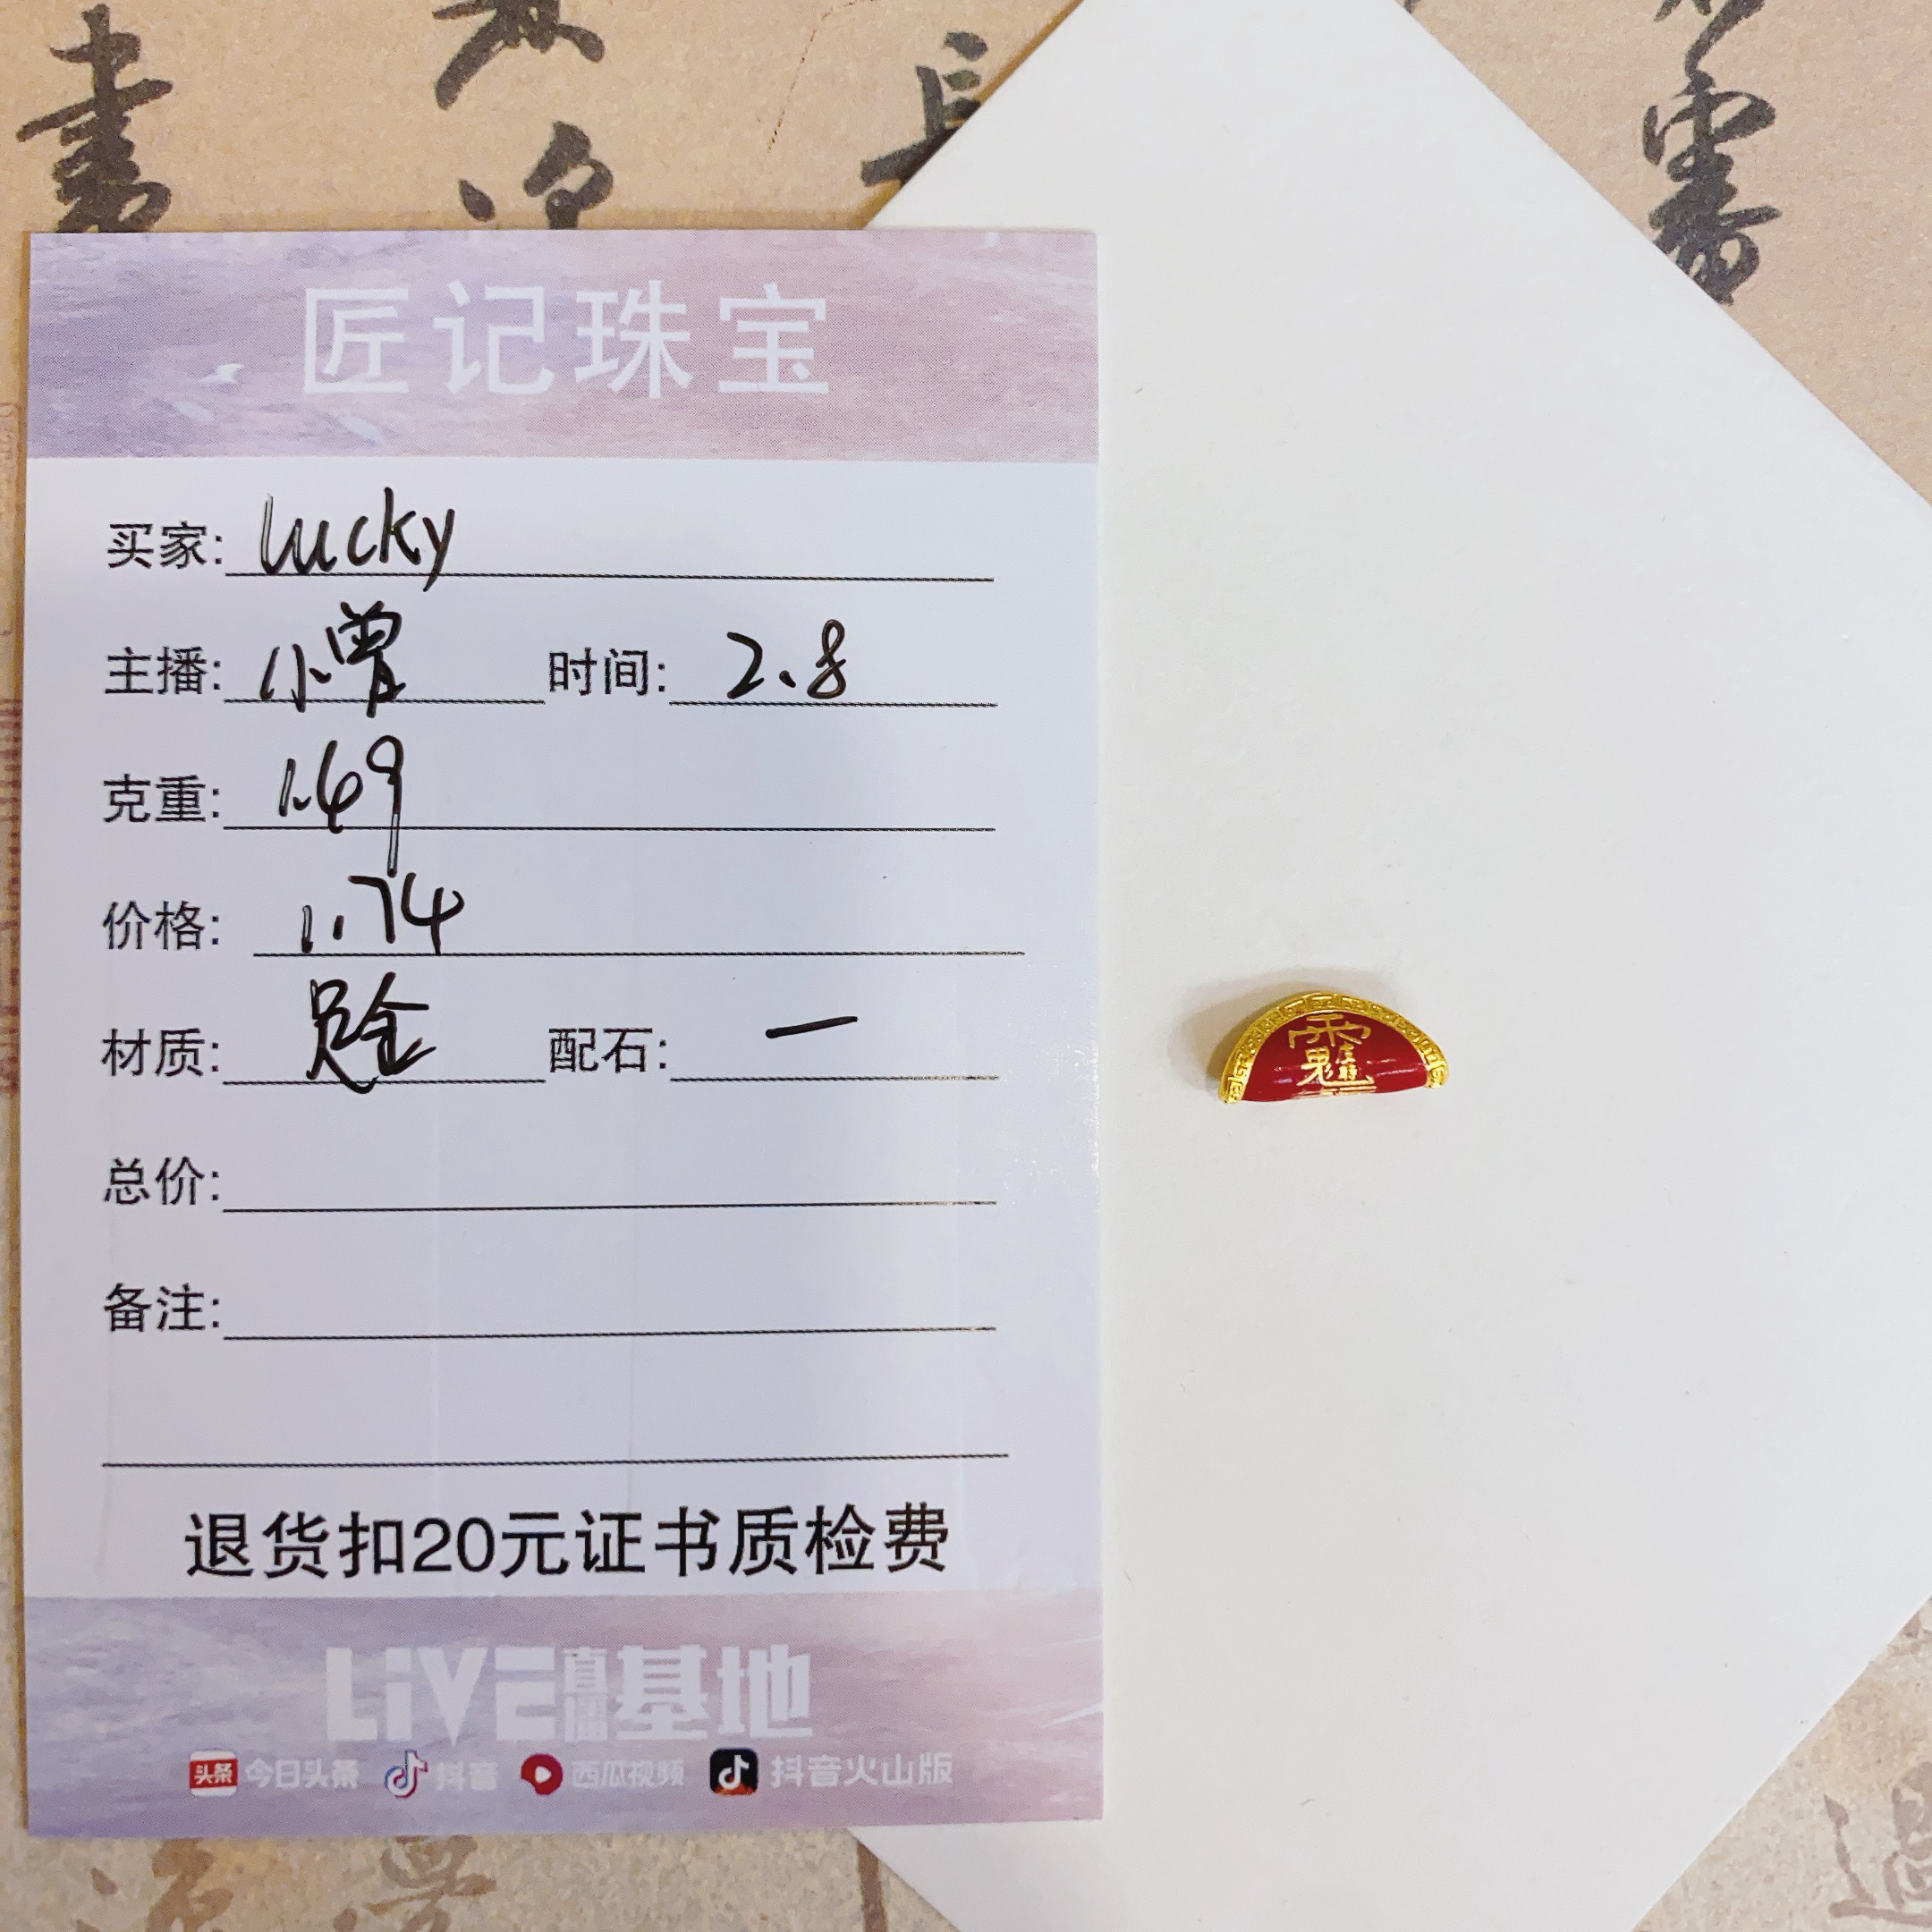 書
長
匠记珠宝
买家: lucky
主播: 小曾 时间: 2.8
克重: 1.69
价格: 1.74
材质: 足金 配石: 一
总价:
备注:
退货扣20元证书质检费
LIVE直播基地
头条 今日头条 抖音 西瓜视频 抖音火山版